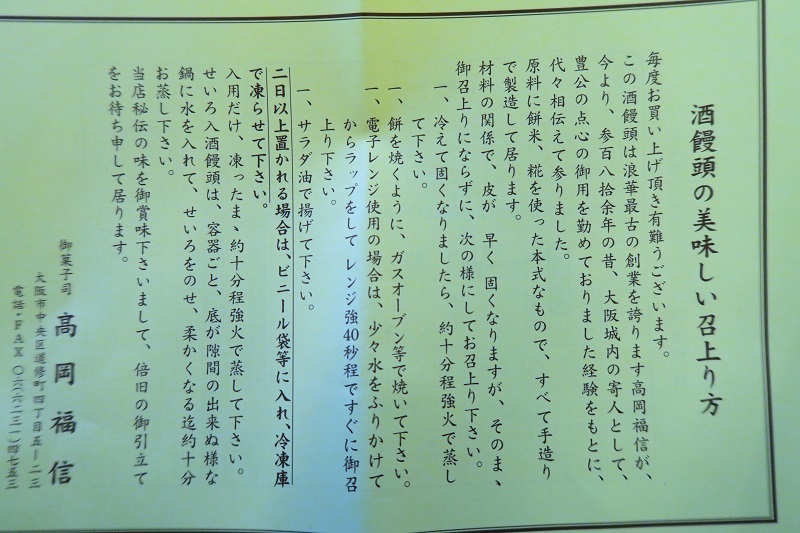 酒饅頭の美味しい召上り方
毎度お買い上げ頂き有難うございます。
この酒饅頭は浪華最古の創業を誇ります高岡福信が、
今より、参百八拾余年の昔、大阪城内の寄人として、
豊公の点心の御用を勤めておりました経験をもとに、
代々相伝えて参りました。
原料に餅米、糀を使った本式なもので、すべて手造り
で製造して居ります。
材料の関係で、皮が 早く 固くなりますが、そのま、
御召上りにならずに、次の様にしてお召上り下さい。
一、冷えて固くなりましたら、約十分程強火で蒸し
て下さい。
一、餅を焼くように、ガスオーブン等で焼いて下さい。
一、電子レンジ使用の場合は、少々水をふりかけて
からラップをして レンジ強40秒程ですぐに御召
上り下さい。
一、サラダ油で揚げて下さい。
二日以上置かれる場合は、ビニール袋等に入れ、冷凍庫
で凍らせて下さい。
入用だけ、凍ったまゝ約十分程強火で蒸して下さい。
せいろ入酒饅頭は、容器ごと、底が隙間の出来ぬ様な
鍋に水を入れて、せいろをのせ、柔かくなる迄約十分
お蒸し下さい。
当店秘伝の味を御賞味下さいまして、倍旧の御引立て
をお待ち申して居ります。
御菓子司 高岡福信
大阪市中央区道修町四丁目五ー二三
電話・FAX 〇六(六二三一)四七五三